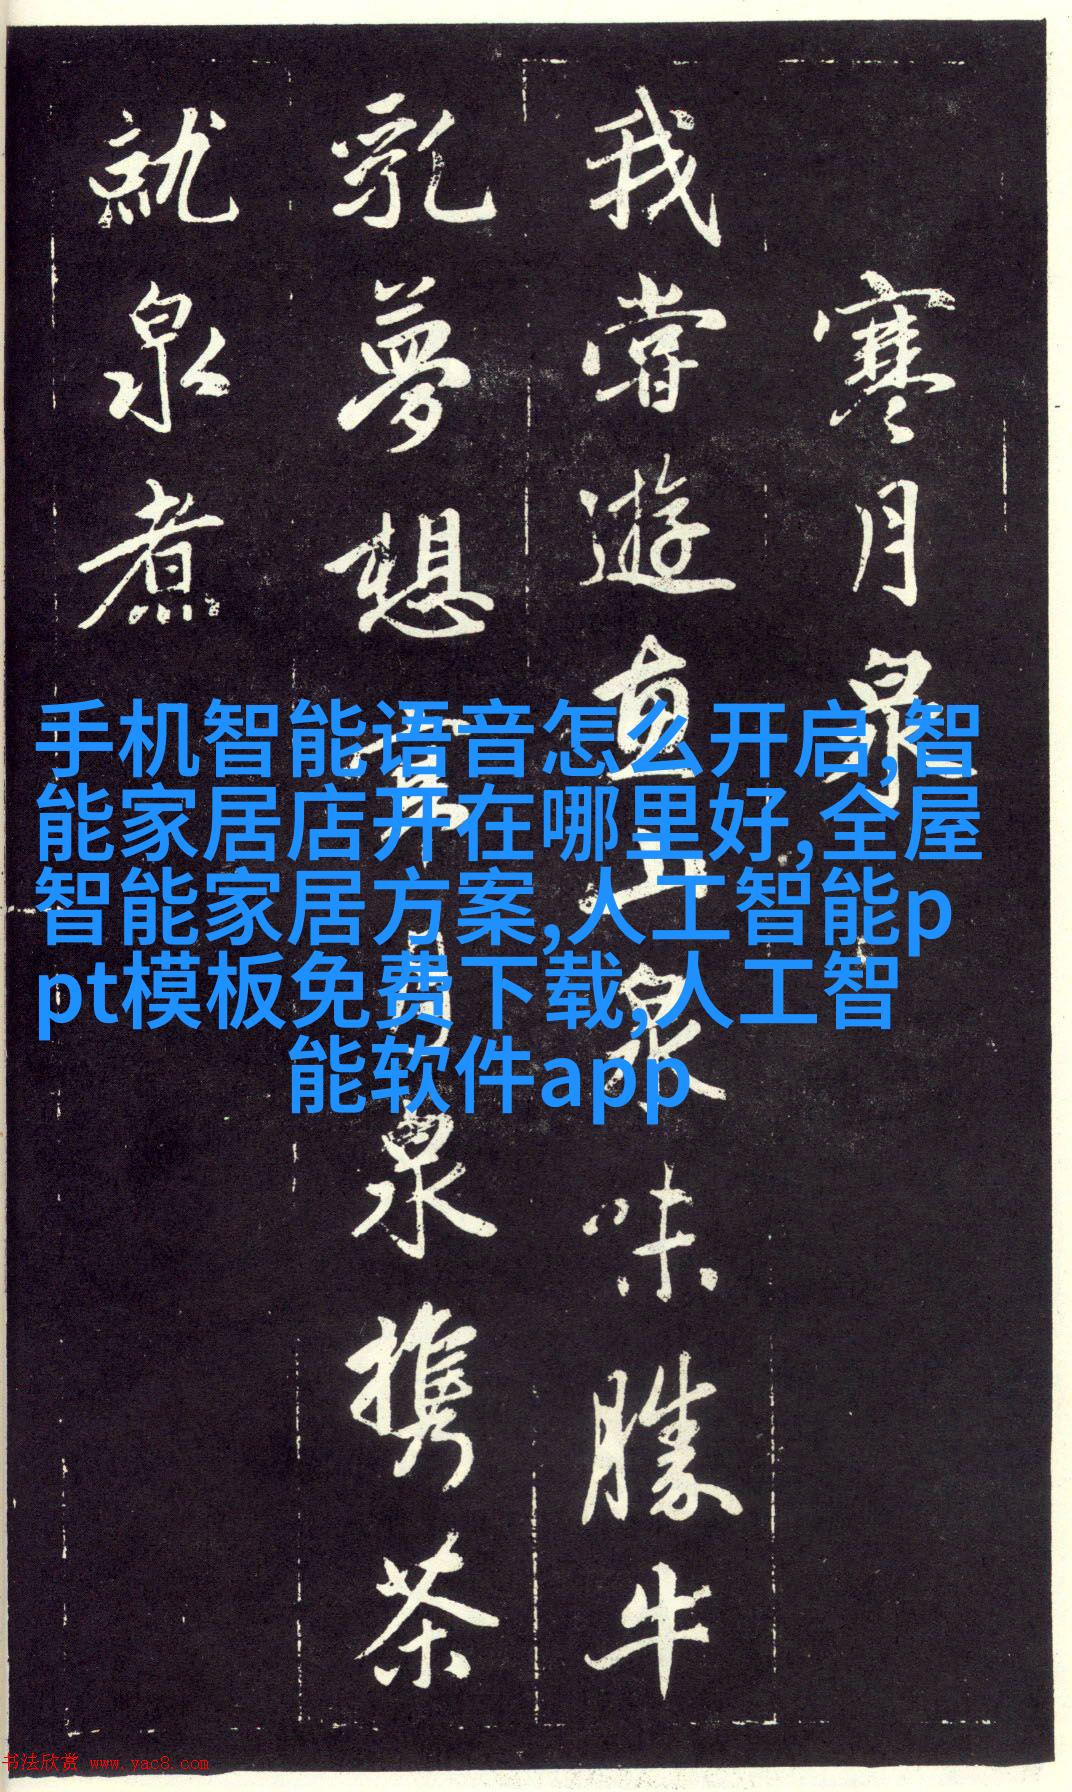 寒月泉
我嘗遊惠山泉味勝牛
乳夢想寒月泉攜茶
就泉煮
手机智能语音怎么开启,智
能家居店开在哪里好,全屋
智能家居方案,人工智能p
pt模板免费下载,人工智
能软件app
书法欣赏 www.yac8.com